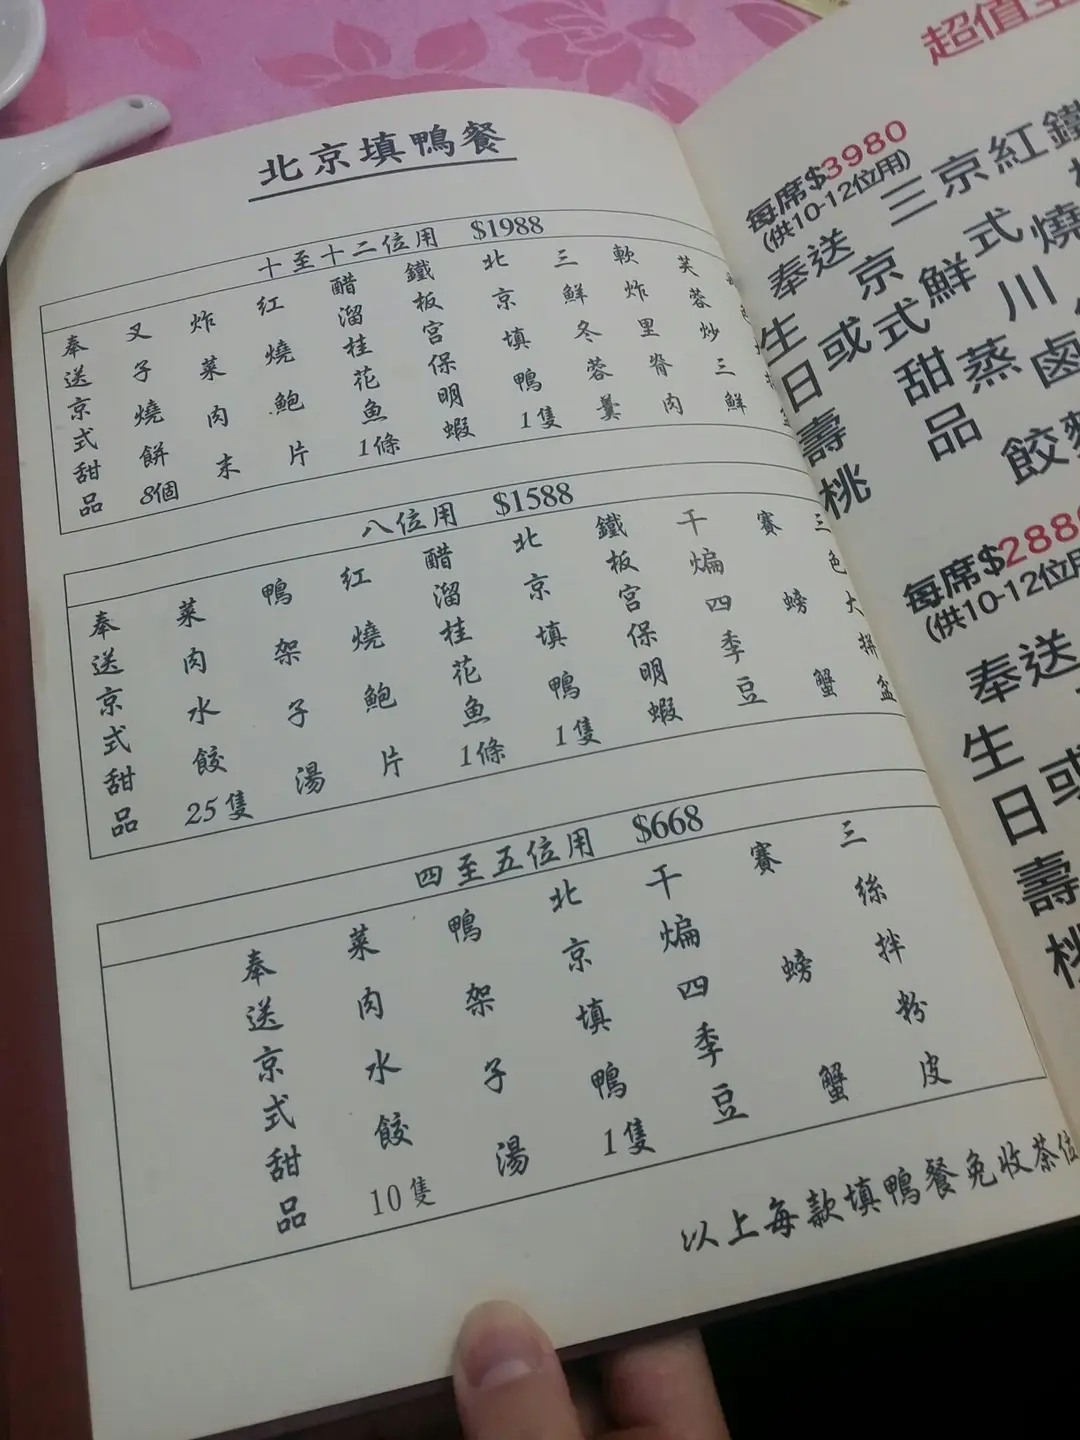 北京填鴨餐
十至十二位用 $1988
芙蓉炒三鮮
軟炸里脊肉
三鮮冬蓉羹
北京填鴨1隻
鐵板宮保明蝦
醋溜桂花魚1條
紅燒鮑片
炸菜肉末
叉子燒餅8個
奉送京式甜品
八位用 $1588
三色大拼盆
賽螃蟹
干煸四季豆
鐵板宮保明蝦
北京填鴨1隻
醋溜桂花魚1條
紅燒鮑片
鴨架子湯
菜肉水餃25隻
奉送京式甜品
四至五位用 $668
三絲拌粉皮
賽螃蟹
干煸四季豆
北京填鴨1隻
鴨架子湯
菜肉水餃10隻
奉送京式甜品
以上每款填鴨餐免收茶位
超值
每席$3980
(供10-12位用)
奉送
生日壽桃
或
京式甜品
每席$288
(供10-12位用
奉送
生日壽桃
或